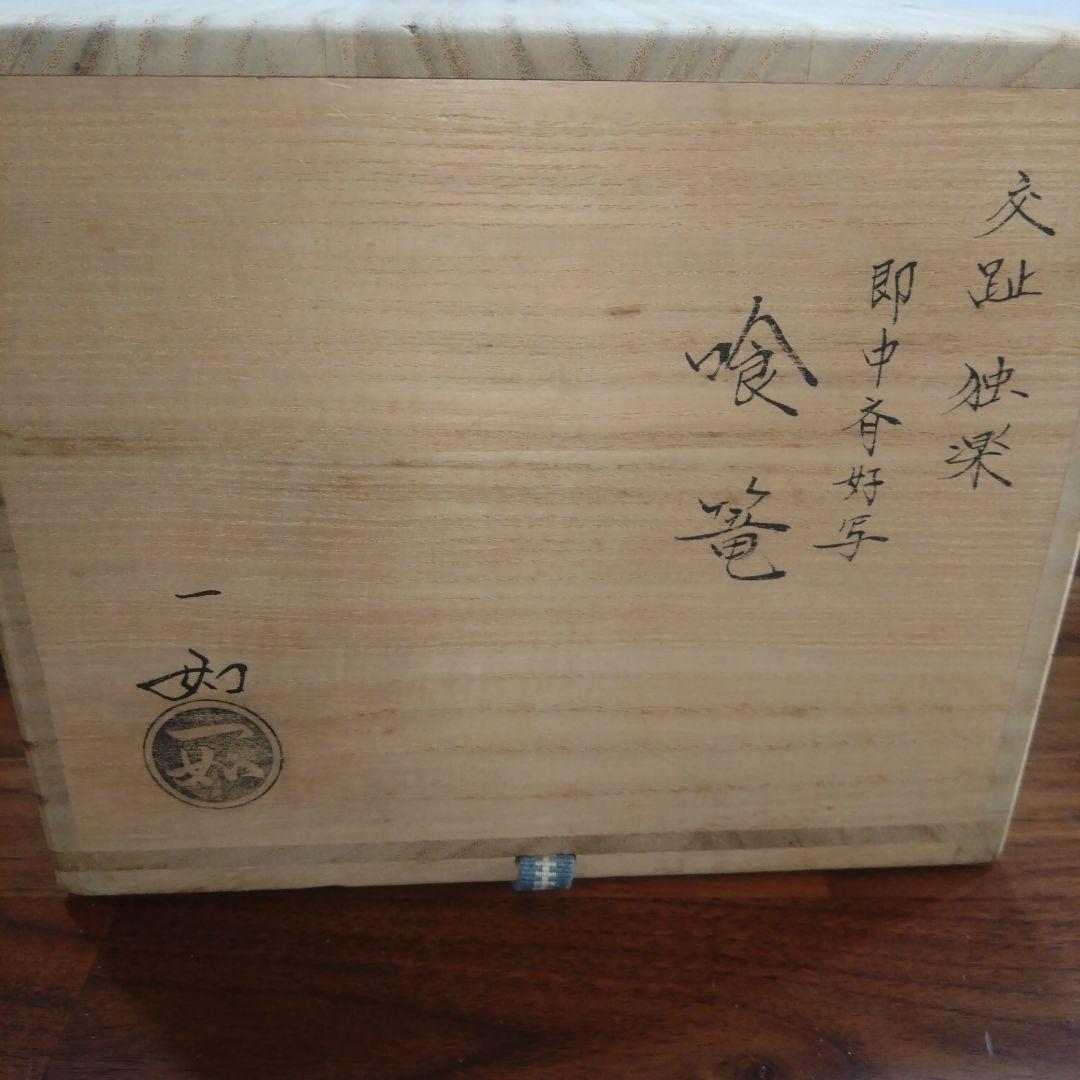 交趾 独楽
即中斎好写
喰篭
一如
一如